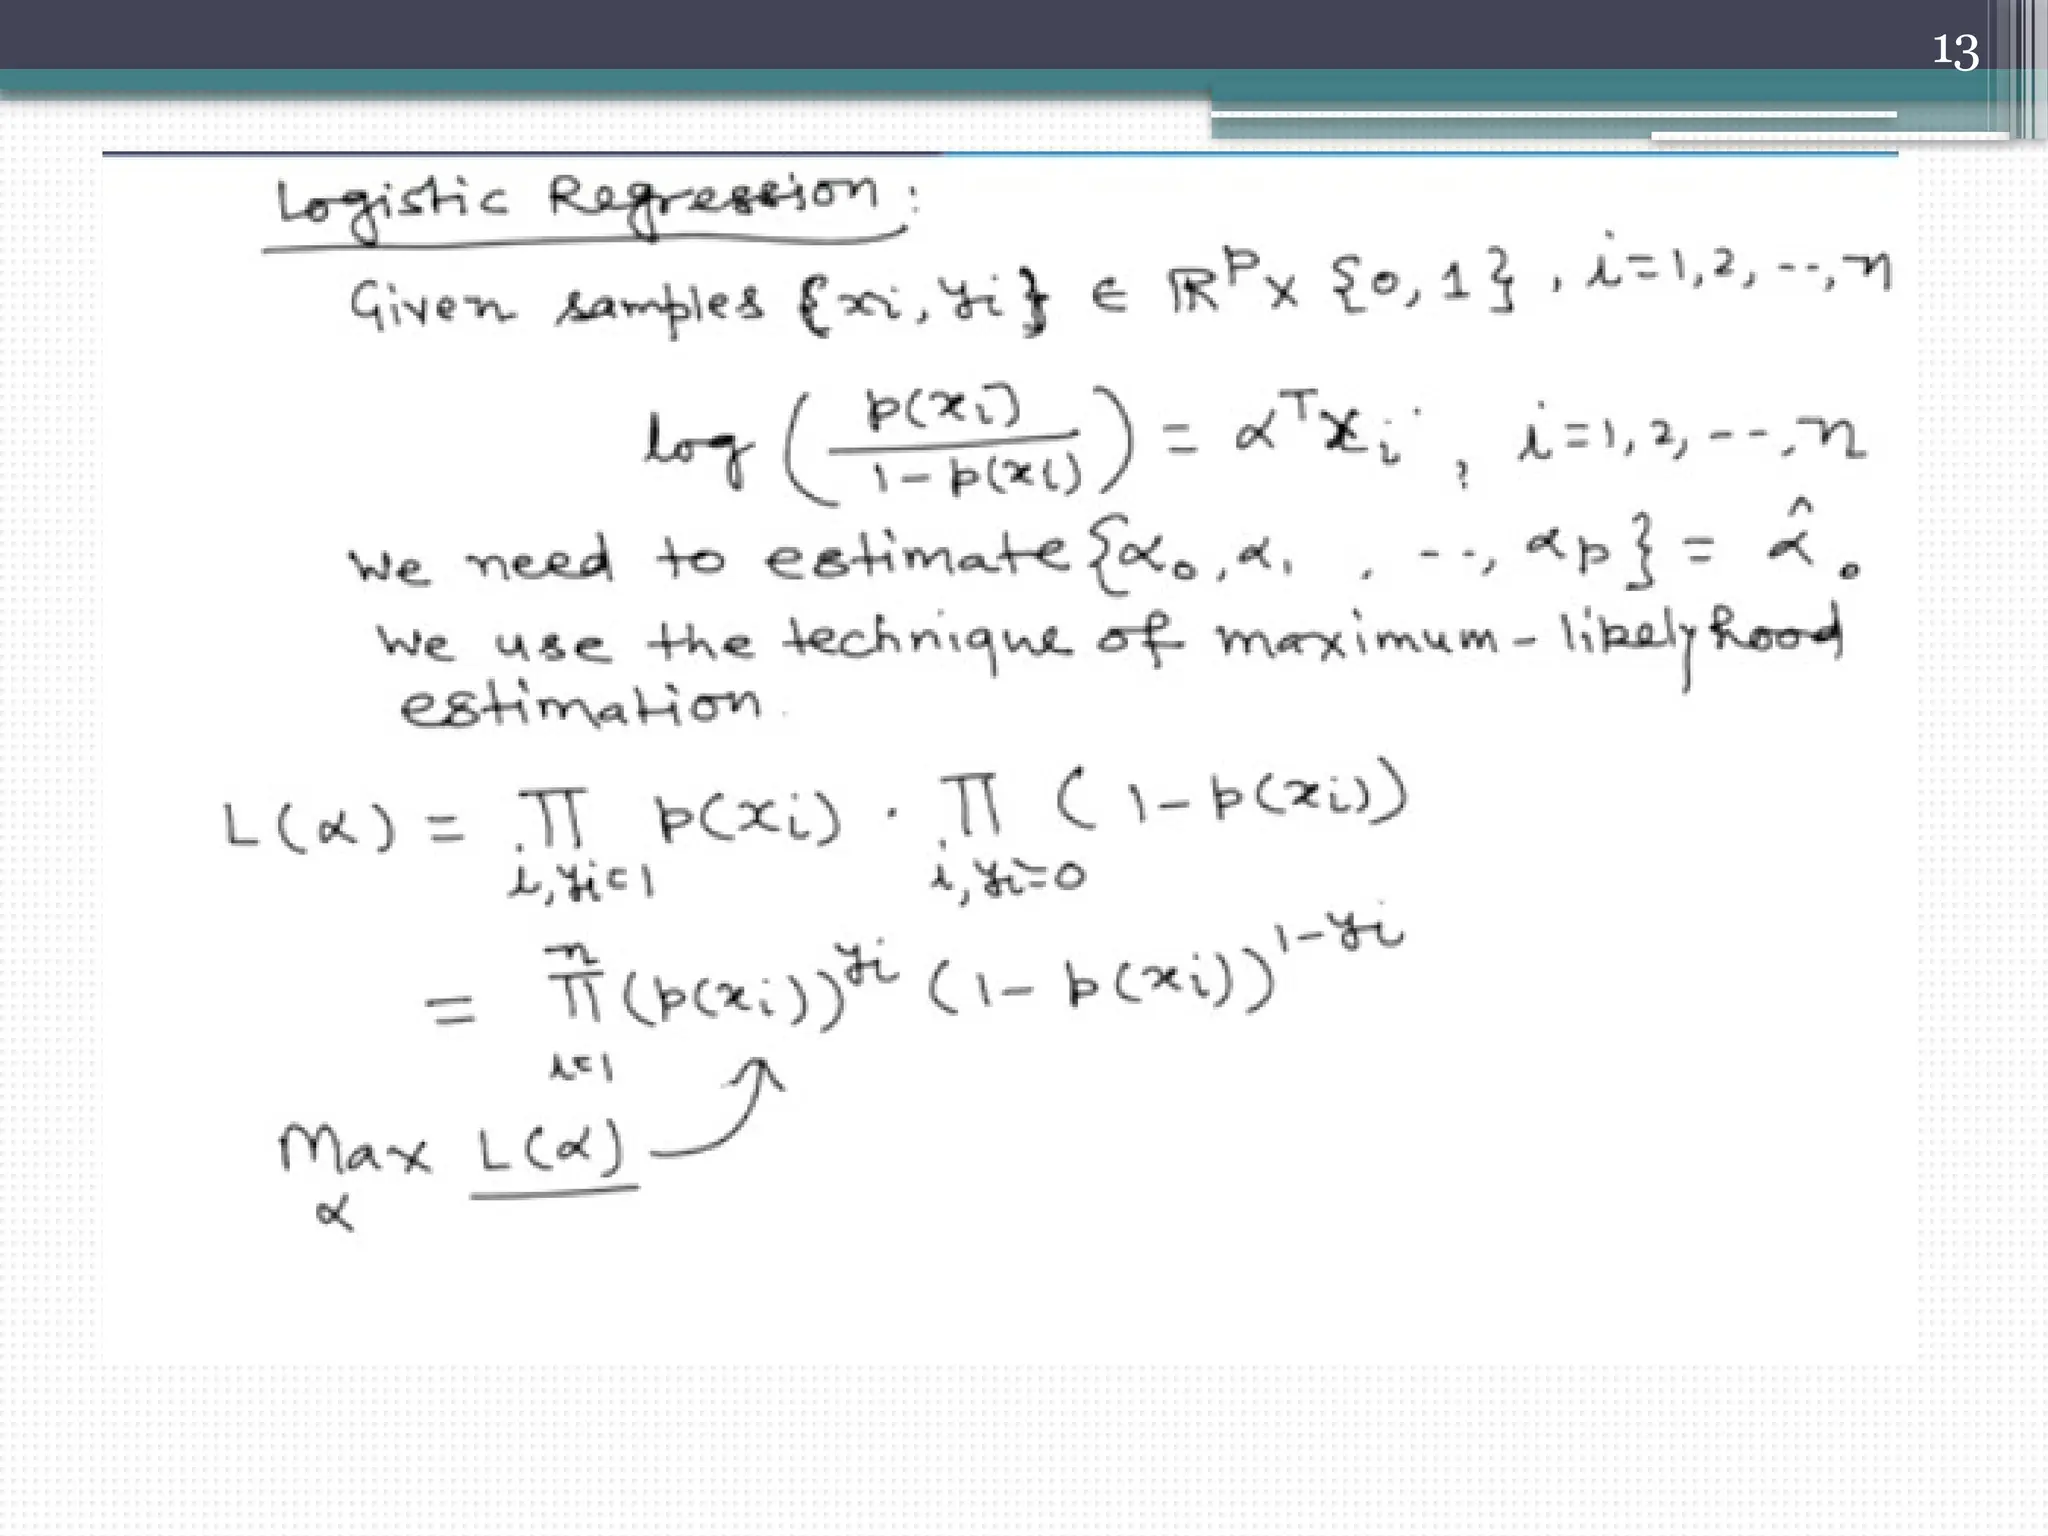 13
Logistic Regression:
Given samples {xi, yi} ∈ ℝ^p × {0, 1}, i=1,2, --,n
log ( p(xi) / 1-p(xi) ) = α^T xi, i=1,2, --,n
We need to estimate {α0, α1, --, αp} = α̂.
We use the technique of maximum-likelyhood
estimation.
L(α) = ∏_{i, yi=1} p(xi) · ∏_{i, yi=0} (1-p(xi))
= ∏_{i=1}^{n} (p(xi))^{yi} (1-p(xi))^{1-yi}
Max_α L(α)